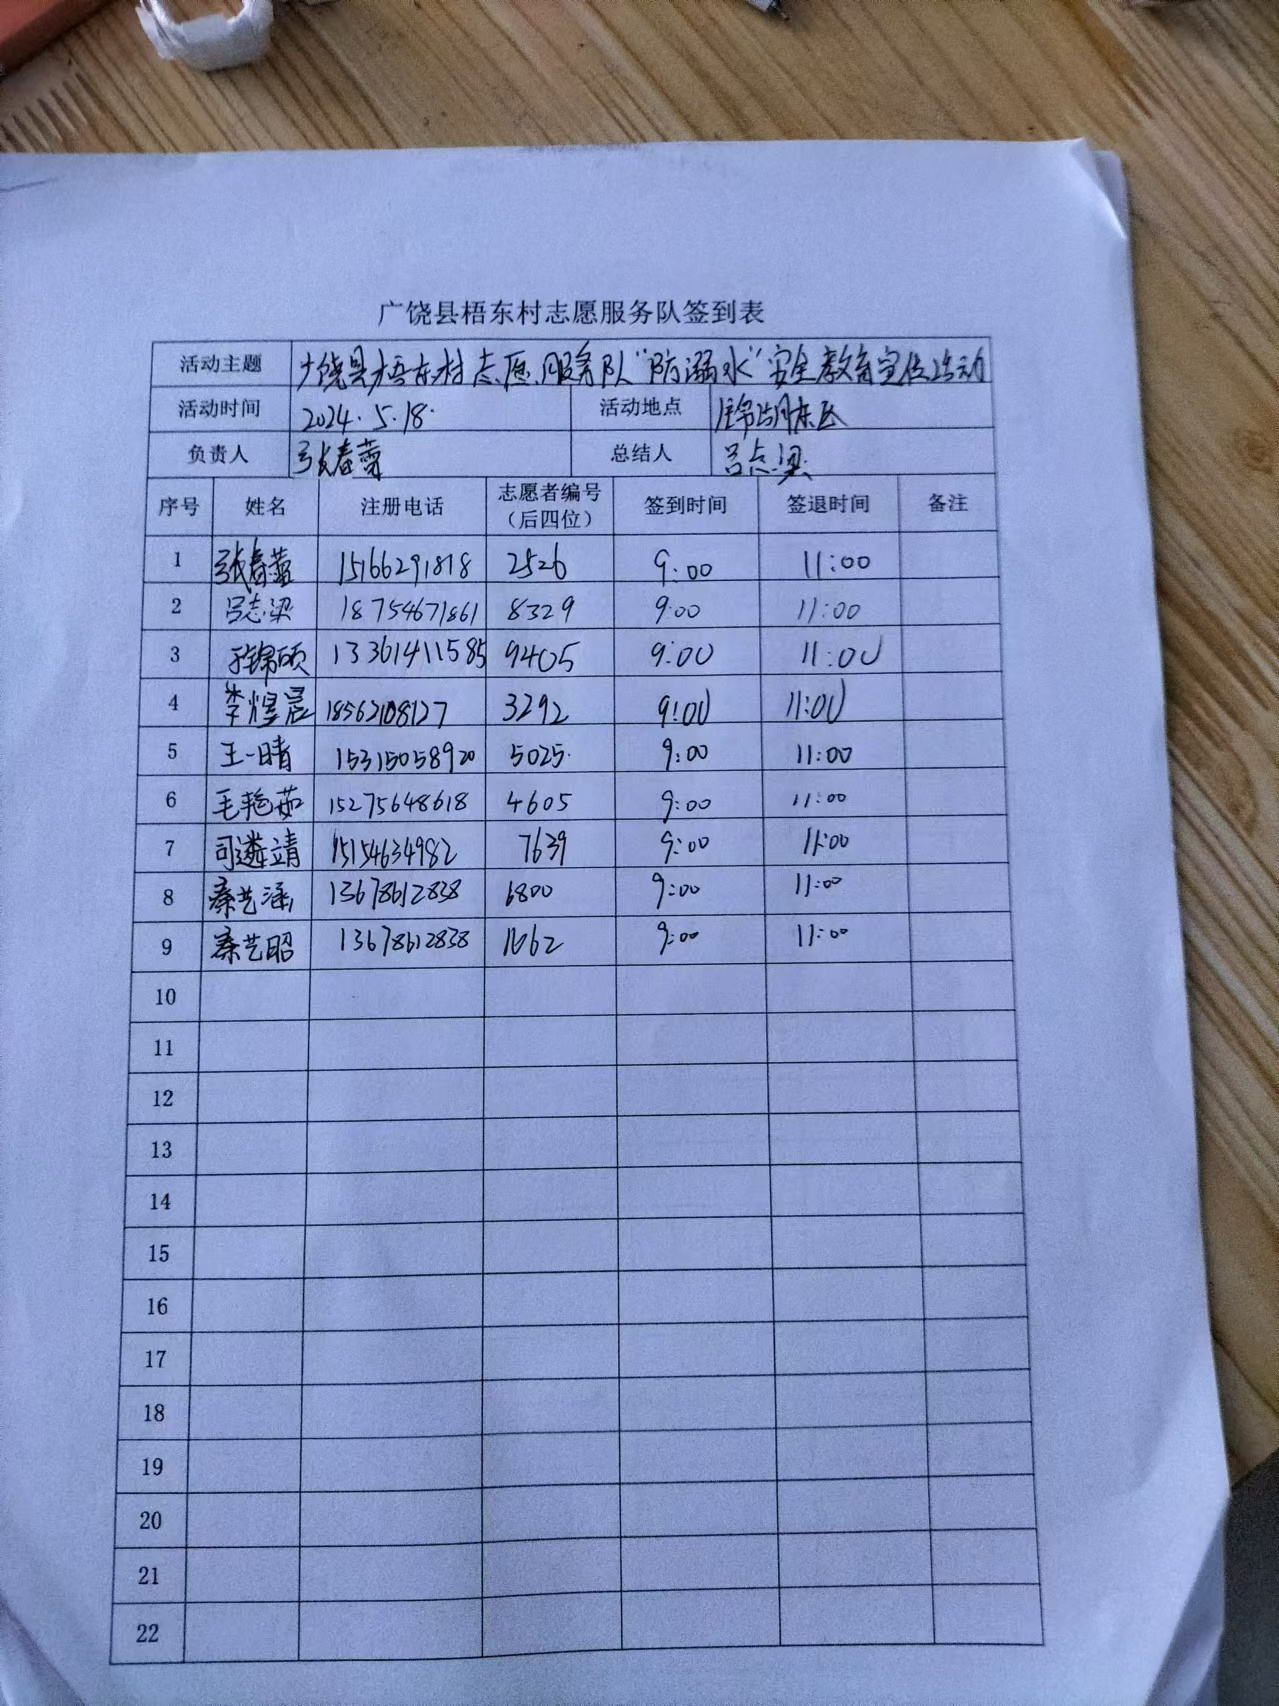 广饶县梧东村志愿服务队签到表
活动主题 广饶县梧东村志愿服务队"防溺水"安全教育宣传活动
活动时间 2024.5.18. 活动地点 锦湖东区
负责人 张春蕾 总结人 吕志梁
序号 姓名 注册电话 志愿者编号（后四位） 签到时间 签退时间 备注
1 张春蕾 15166291818 2526 9:00 11:00
2 吕志梁 18754671861 8329 9:00 11:00
3 锦硕 13361411585 9405 9:00 11:00
4 李煜晨 18562108127 3292 9:00 11:00
5 王一晴 15315058920 5025. 9:00 11:00
6 毛艳茹 15275648618 4605 9:00 11:00
7 司遴靖 15154634982 7639 9:00 11:00
8 秦艺涵 13678612838 6800 9:00 11:00
9 秦艺昭 13678612838 1662 9:00 11:00
10
11
12
13
14
15
16
17
18
19
20
21
22